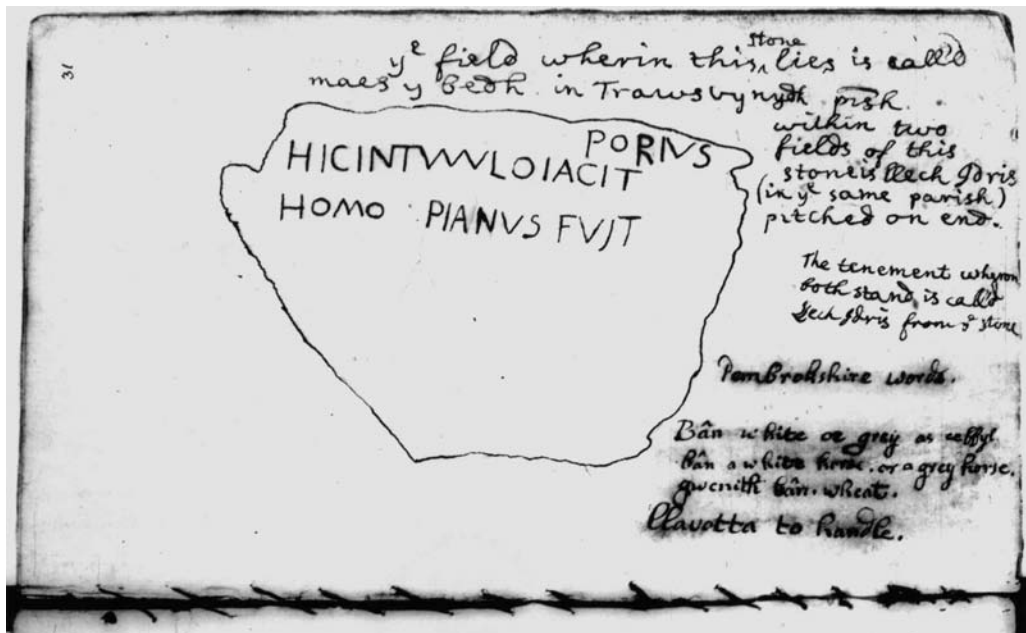 31
yᵉ field wherin this stone lies is call'd
maes y bedh in Trawsvynydh pish.
within two
fields of this
stone is llech Idris
(in yᵉ same parish)
pitched on end.
PORIVS
HICINTVVVLOIACIT
HOMO PIANVS FVJT
The tenement wheron
both stand is call'd
Llech Idris from yᵉ stone
Pembrokshire words.
Bân white or grey as ceffyl
bân a white horse. or a grey horse.
gwenith bân. wheat.
llavotta to handle.